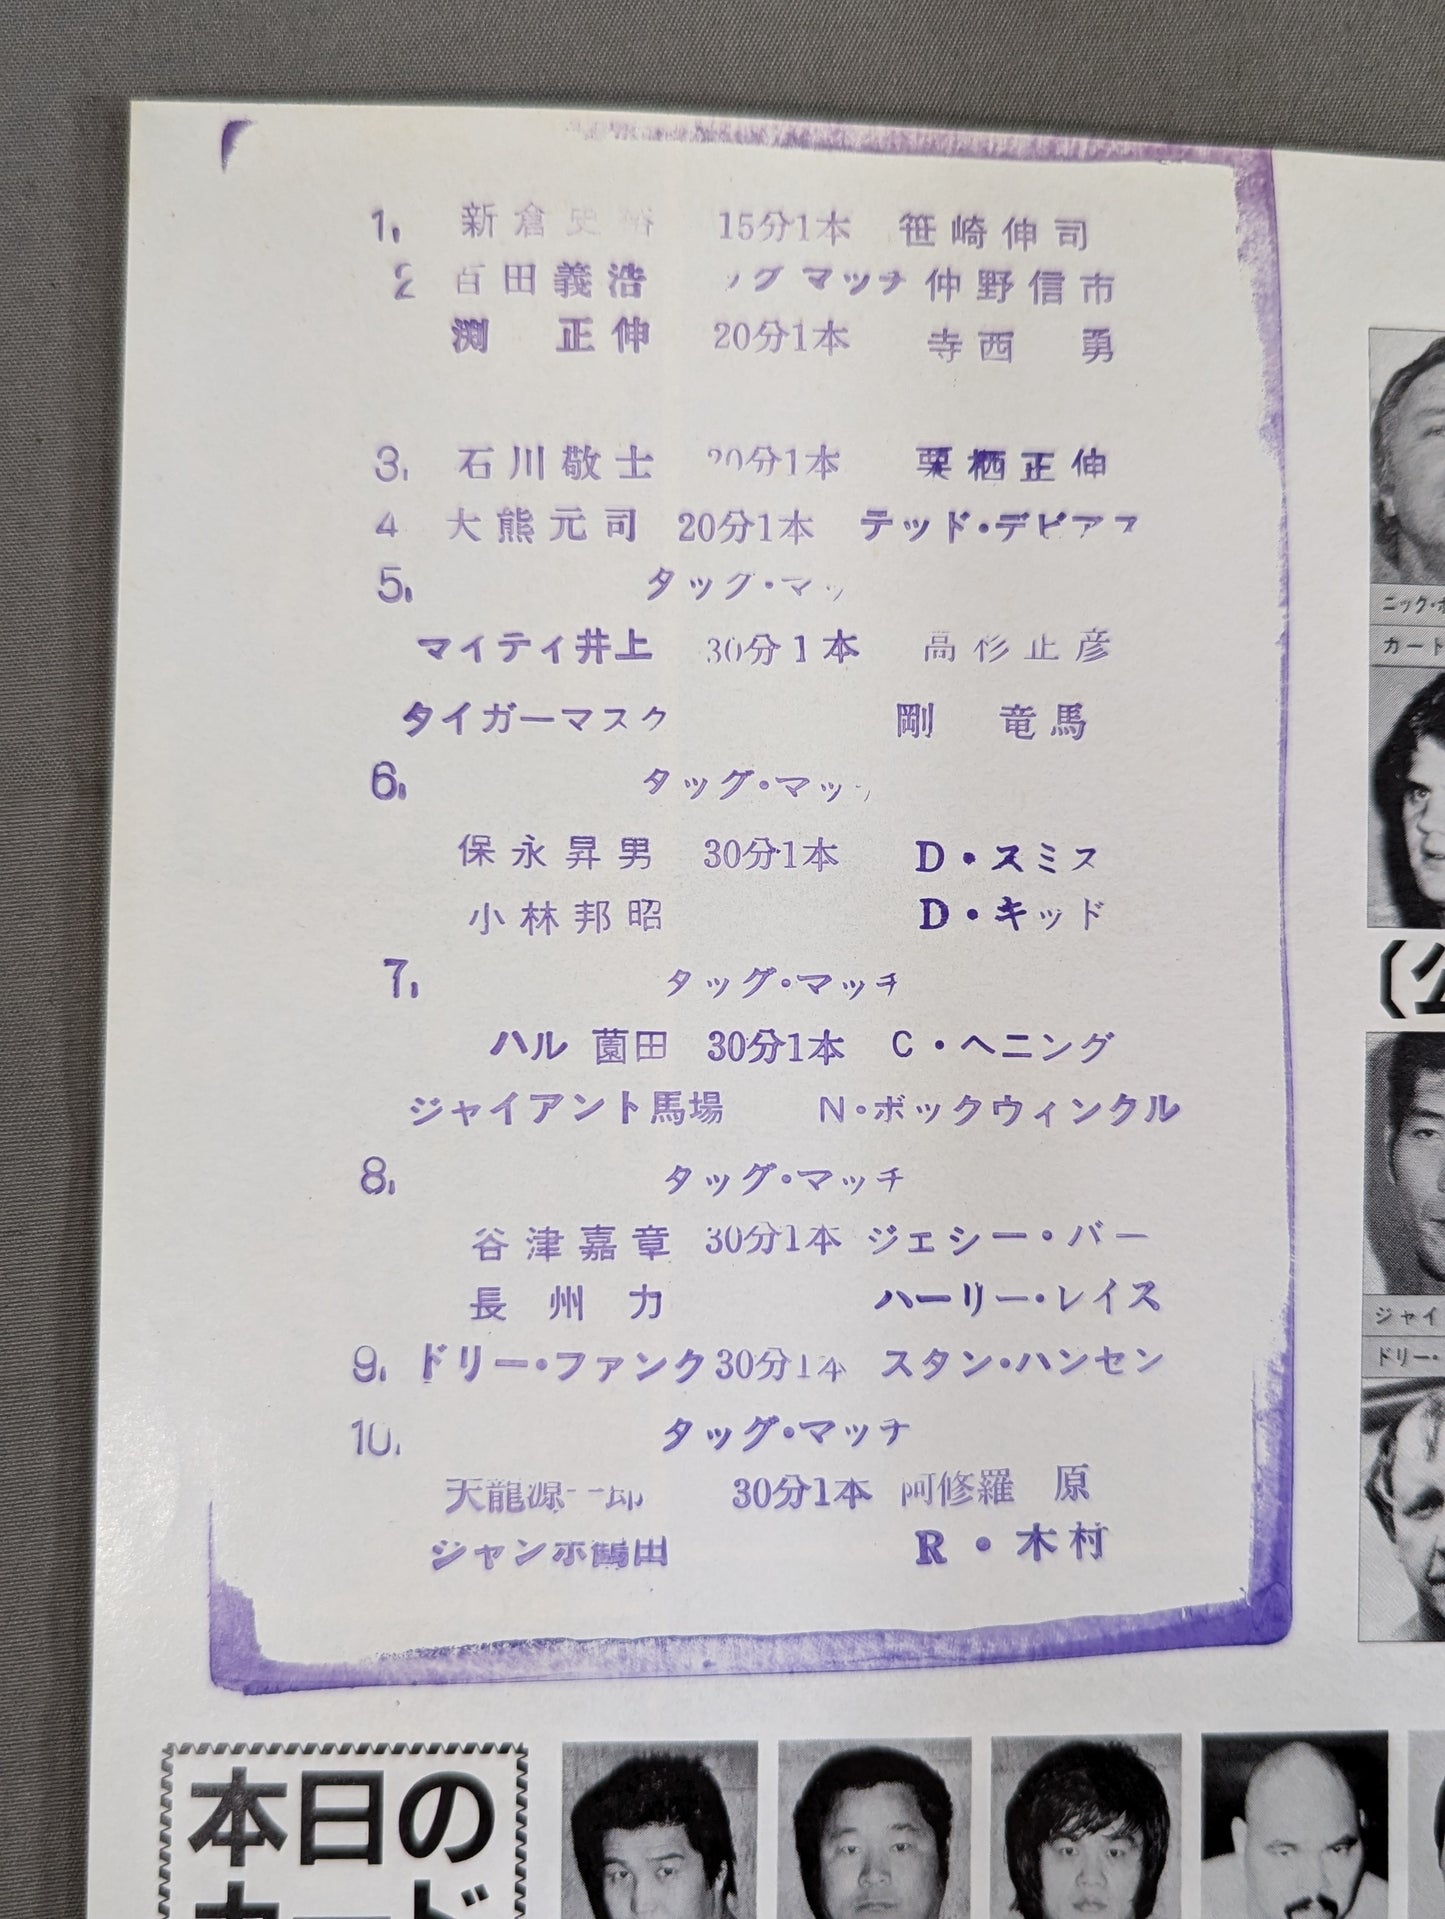 1. 新倉史裕 15分1本 笹崎伸司
2 百田義浩 ッグマッチ 仲野信市
渕 正伸 20分1本 寺西 勇
3. 石川敬士 20分1本 栗栖正伸
4 大熊元司 20分1本 テッド・デビアス
5. タッグ・マッ
マイティ井上 30分1本 高杉正彦
タイガーマスク 剛 竜馬
6. タッグ・マッ
保永昇男 30分1本 D・スミス
小林邦昭 D・キッド
7. タッグ・マッチ
ハル 薗田 30分1本 C・ヘニング
ジャイアント馬場 N・ボックウィンクル
8. タッグ・マッチ
谷津嘉章 30分1本 ジェシー・バー
長州力 ハーリー・レイス
9. ドリー・ファンク 30分1本 スタン・ハンセン
10. タッグ・マッチ
天龍源一郎 30分1本 阿修羅 原
ジャンボ鶴田 R・木村
ニック・ボ
カート
(公
ジャイ
ドリー・
本日の
カード